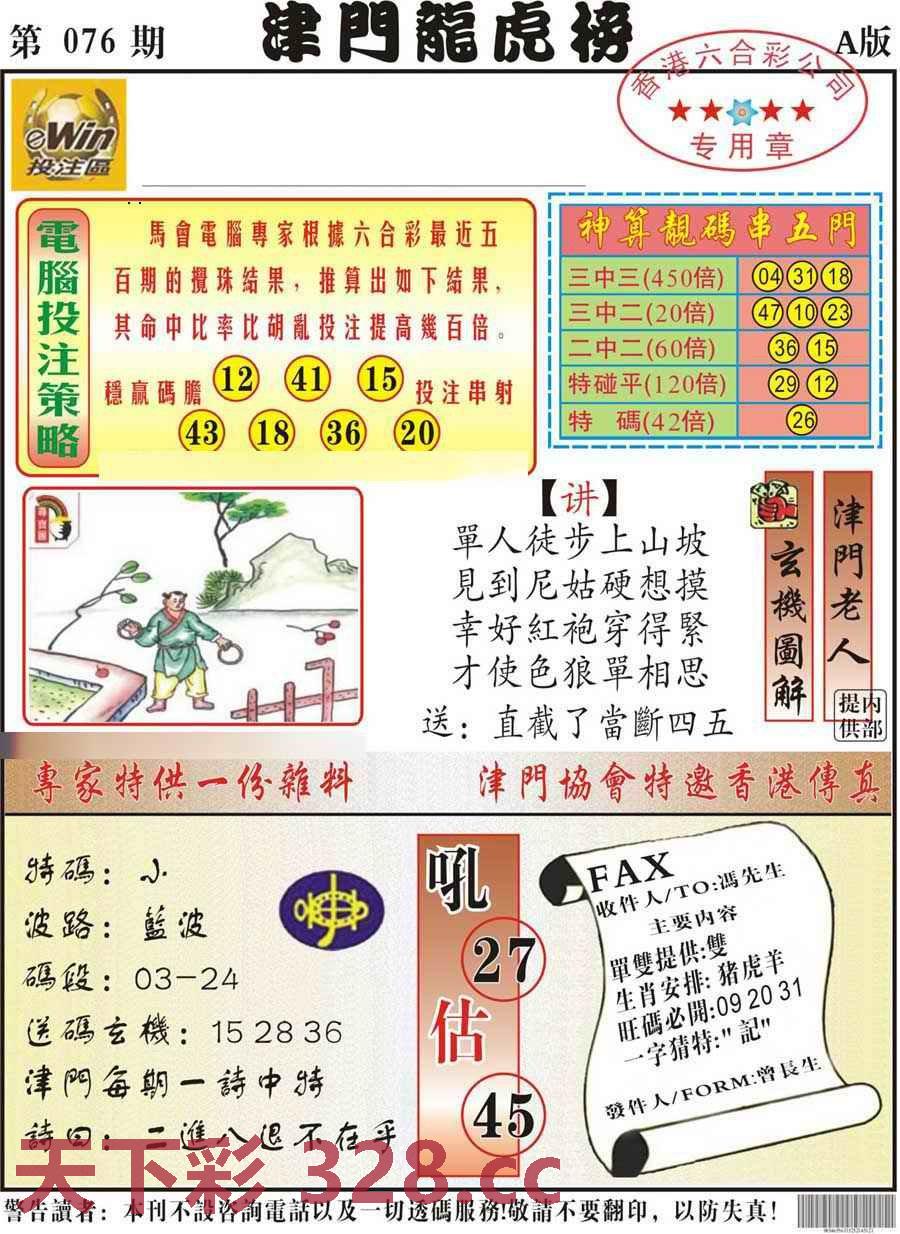 第 076 期
津門龍虎榜
A版
香港六合彩公司
专用章
eWin
投注區
電腦投注策略
馬會電腦專家根據六合彩最近五
百期的攪珠結果，推算出如下結果，
其命中比率比胡亂投注提高幾百倍。
穩贏碼膽 12 41 15 投注串射
43 18 36 20
神算靚碼串五門
三中三(450倍) 04 31 18
三中二(20倍) 47 10 23
二中二(60倍) 36 15
特碰平(120倍) 29 12
特 碼(42倍) 26
尋寶圖
【讲】
單人徒步上山坡
見到尼姑硬想摸
幸好紅袍穿得緊
才使色狼單相思
送：直截了當斷四五
玄機圖解
津門老人
内部提供
專家特供一份雜料
津門協會特邀香港傳真
特碼：小
波路：藍波
碼段：03-24
送碼玄機：15 28 36
津門每期一詩中特
詩曰：二進八退不在乎
吼
27
估
45
FAX
收件人/TO:馮先生
主要内容
單雙提供:雙
生肖安排:猪虎羊
旺碼必開:09 20 31
一字猜特:"記"
發件人/FORM:曾長生
天下彩 328.cc
警告讀者：本刊不設咨詢電話以及一切透碼服務!敬請不要翻印，以防失真！